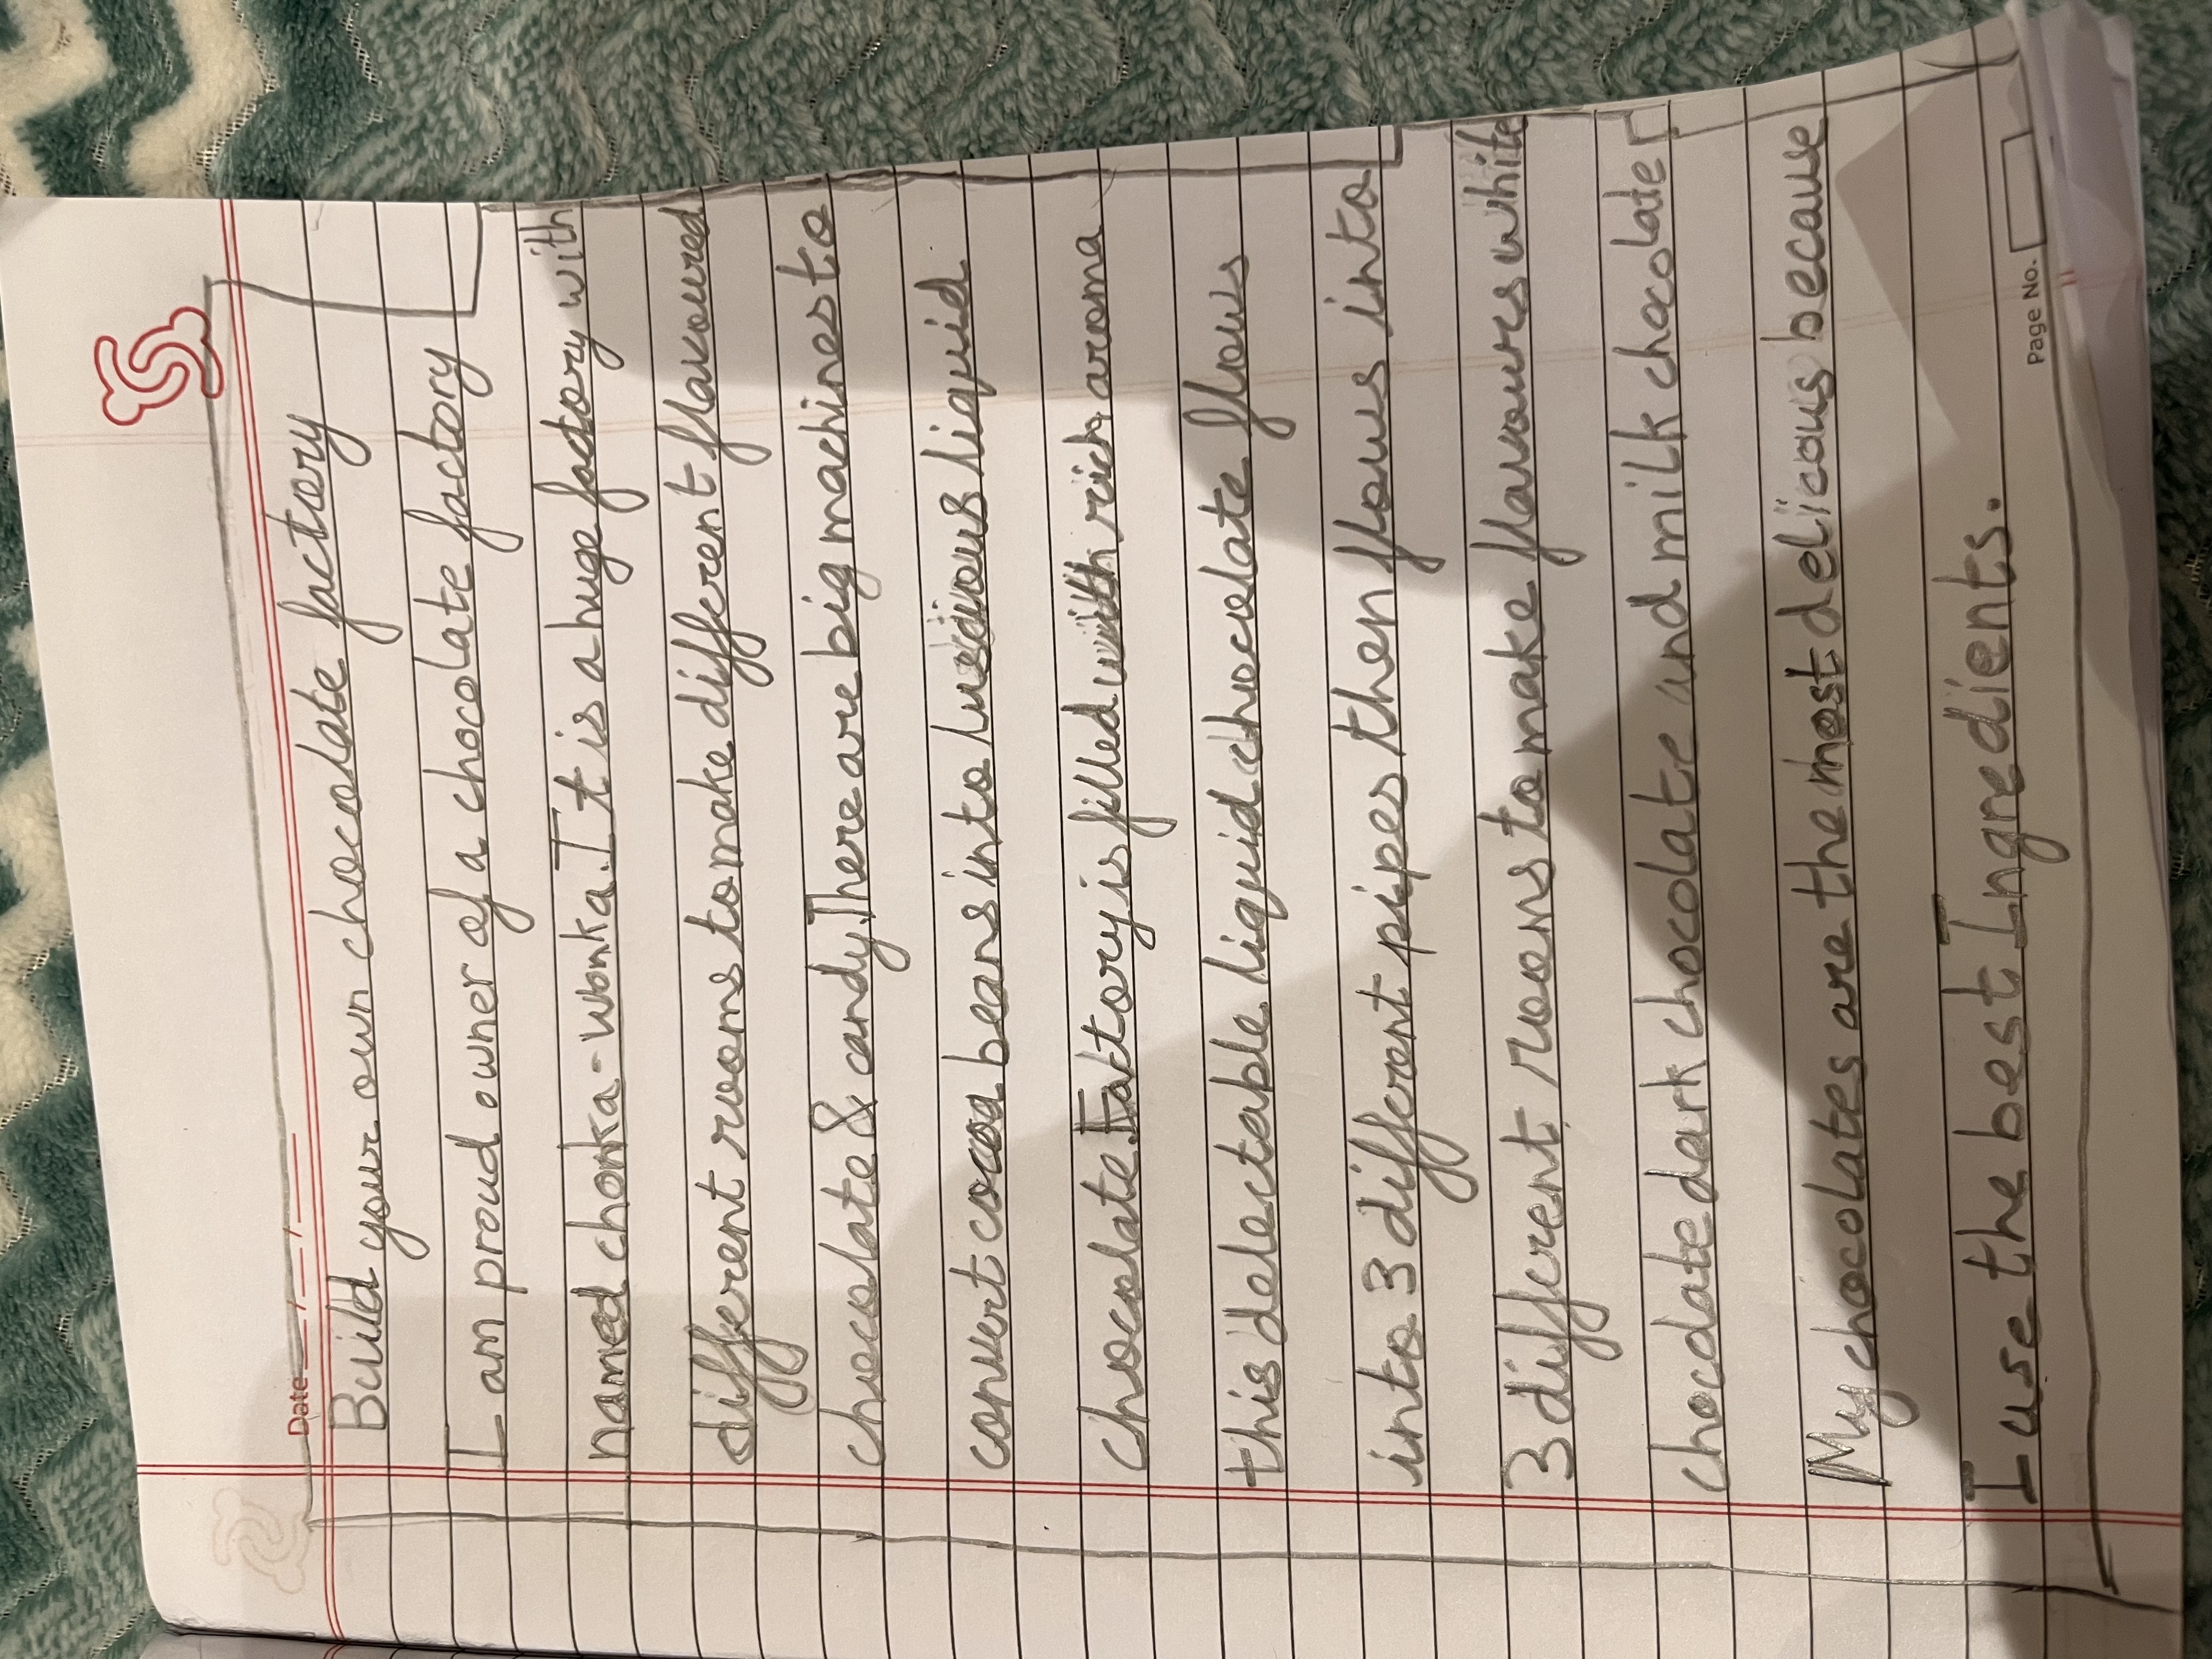 Date
Build your own chocolate factory
I am proud owner of a chocolate factory
named chonka-wonka. It is a huge factory with
different rooms to make different flavoured
chocolate & candy. There are big machines to
convert cocoa beans into luscious liquid
chocolate. Factory is filled with rich aroma
this delectable liquid chocolate flows
into 3 different pipes then flows into
3 different rooms to make flavoures white
chocolate dark chocolate and milk chocolate
My chocolates are the most delicous because
I use the best Ingredients.
Page No.